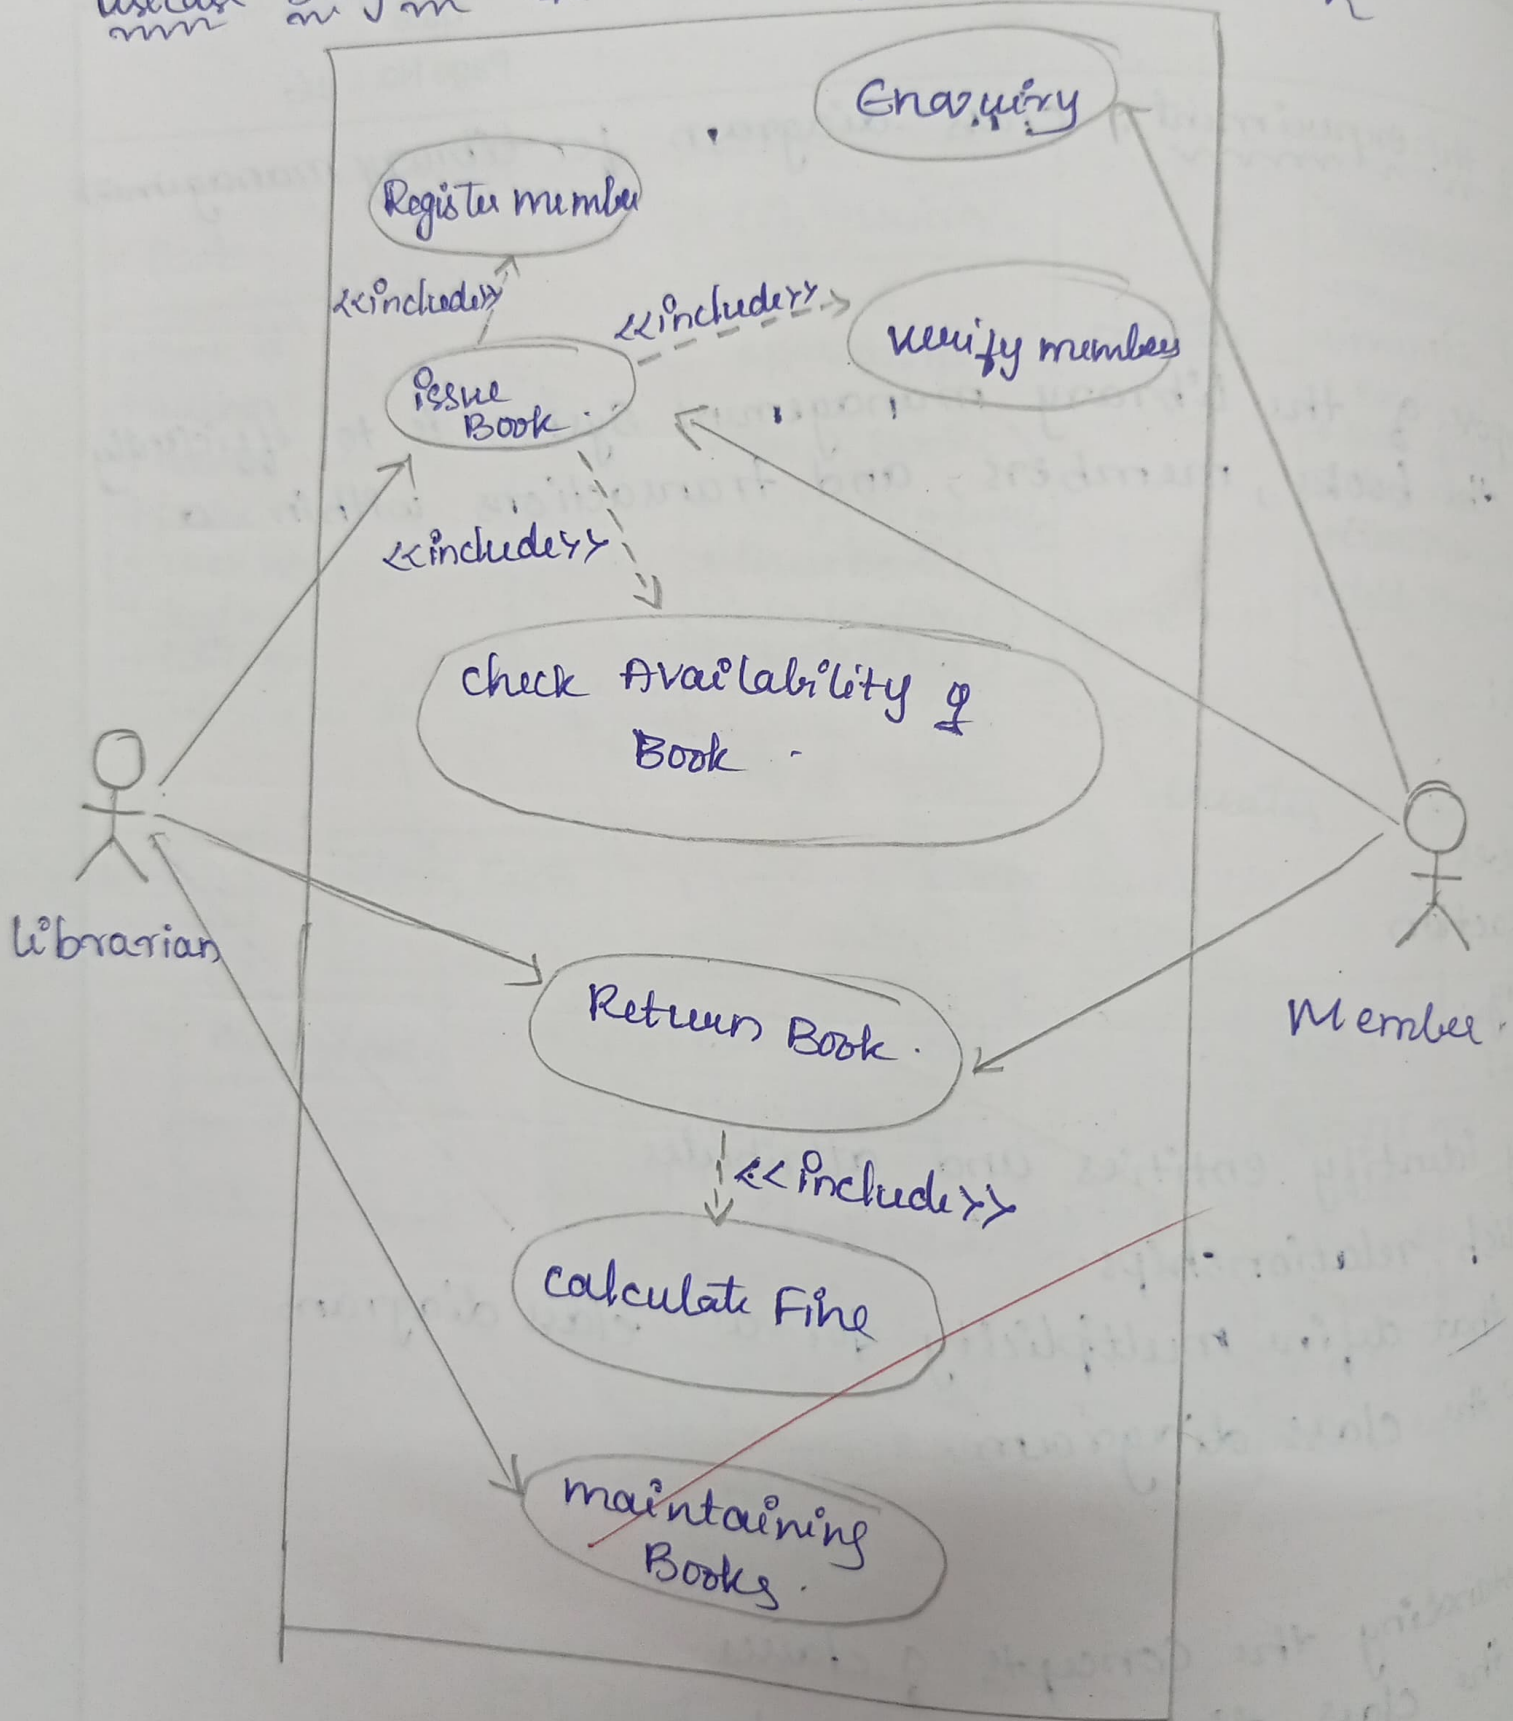 Enquiry
Register member
<<include>>
<<include>>
verify members
issue
Book.
<<include>>
check Availability of
Book
librarian
Return Book.
Member.
<<include>>
calculate Fine
maintaining
Books.